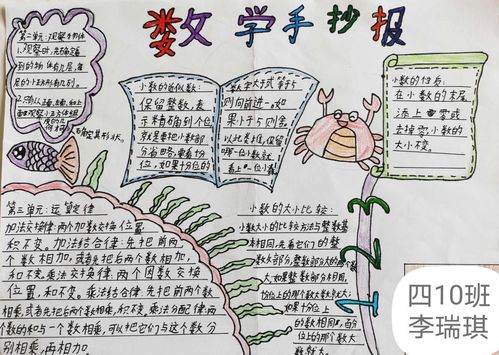 数学手抄报
第二单元：观察物体
1.观察时，先确定看
到的物体有几层，每
层的小正方形有几列。
小数的近似数：
保留整数，表
示精确到个位
就是要把小数部
分省略，要看十分
位，如果十分位的
数字大于或等于5
则向前进一，如
果小于5则舍。
以此类推，保留
哪一位小数就
小数的性质：
在小数的末尾
添上零或
去掉零，小数的
大小不变。
第三单元：运算定律
加法交换律：两个加数交换位置，
和不变。加法结合律：先把前两
个数相加，或者先把后两个数相加，
和不变。乘法交换律：两个因数交换
位置，积不变。乘法结合律：先把前两个数
相乘，或者先把后两个数相乘，积不变。乘法分配律：两
个数的和与一个数相乘，可以把它们与这个数分
别相乘，再相加。
小数的大小比较：
小数大小的比较方法与整数基
本相同，先看它们的整
数部分，整数部分大的那个数
大；如果整数部分相同，
十位上的那个数大数就大；
如果十分位上
的数相同，百分
位上的那个数大
123
四10班
李瑞琪